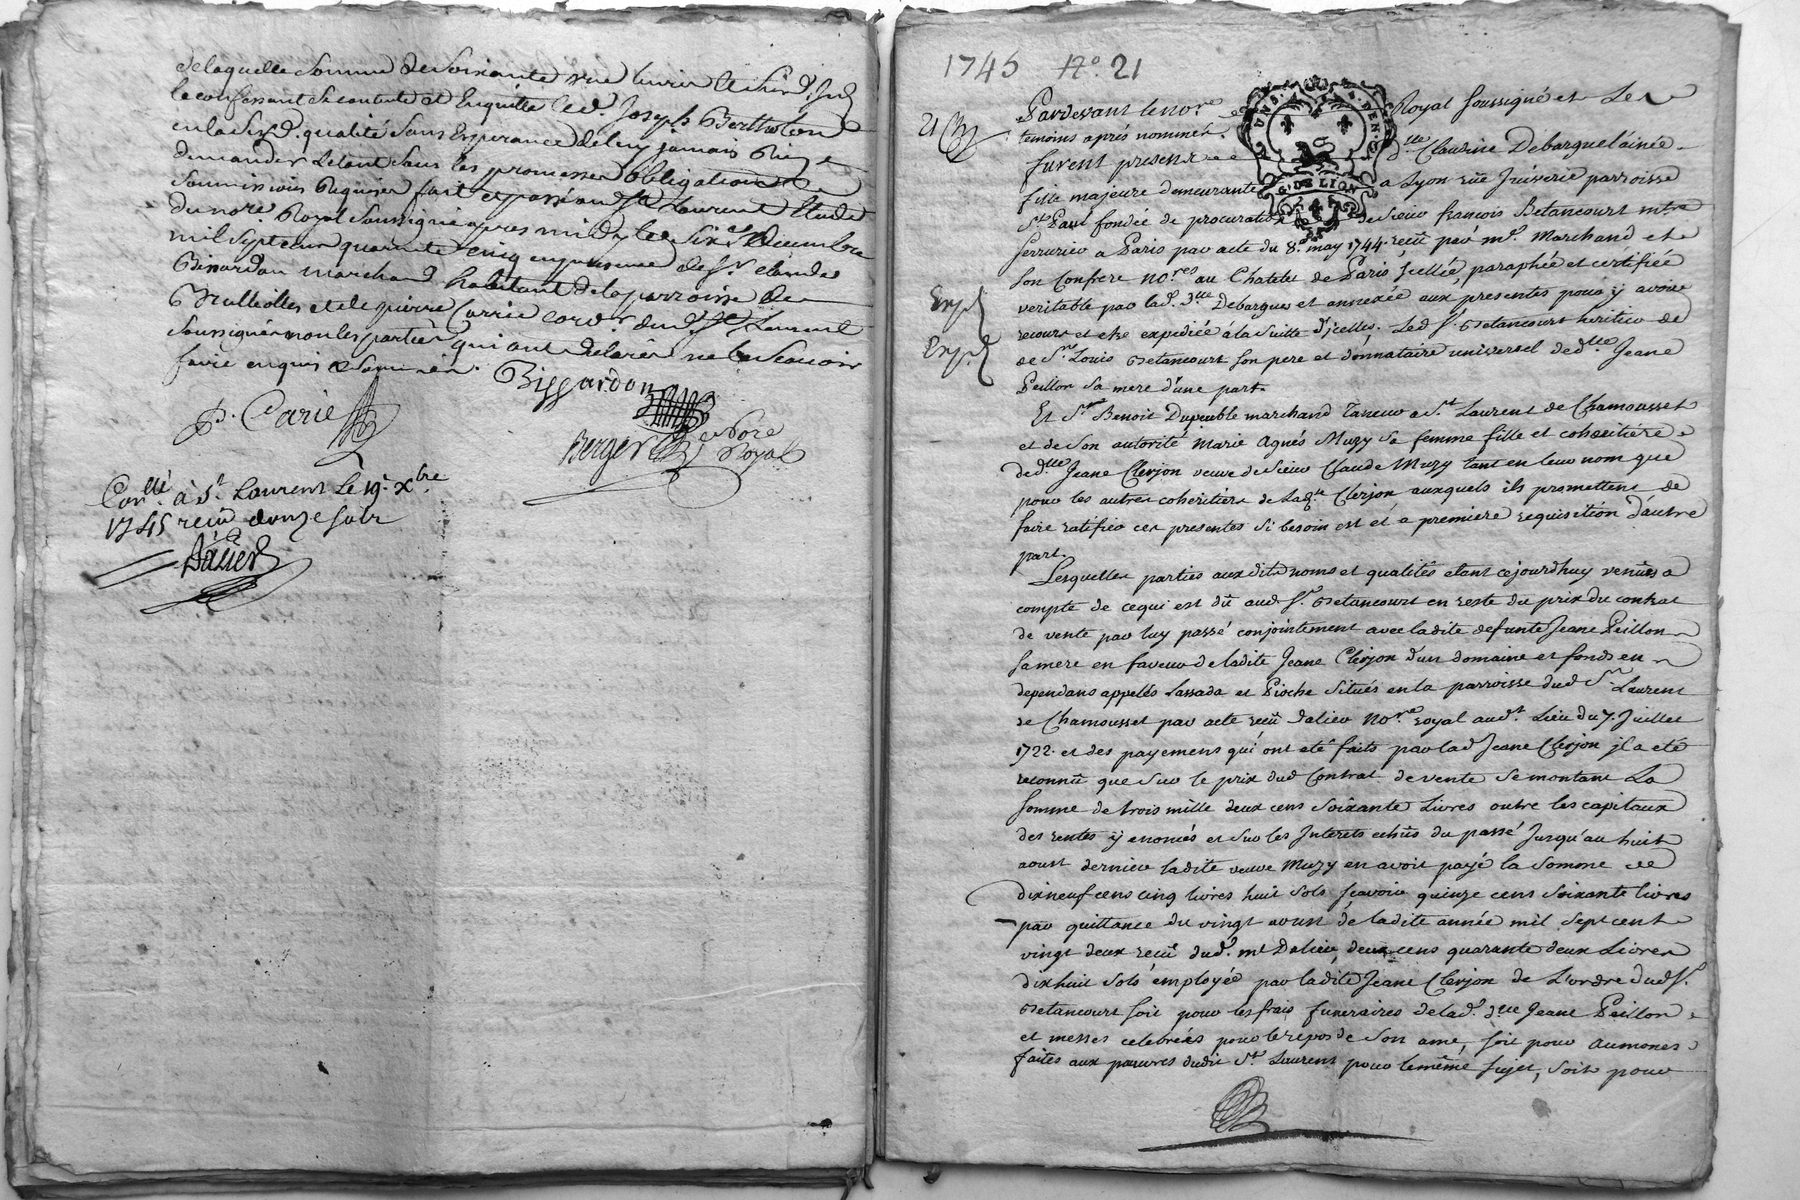 de laquelle somme de soixante une livres le Sieur d. Jud
le confessant se contente et en quitte led. Joseph Bertholon
en lad. qualité sans esperance de luy jamais rien
demander letout sous les promesses obligations
soumissions requises fait et passé aud. St Laurent Etude
du nore. Royal soussigné apres midy le six Decembre
mil sept cent quarante cinq en presence de sr. claude
Bissardon marchand habitant de la parroisse de
et de pierre Carrie cord. dud. St Laurent
soussignés non les parties qui ont declaré ne le scavoir
faire enquis & sommés.
Bissardon
P. Carie
Berger Nore Royal
Conllé à St Laurent Le 19e xbre
1745 reçu douze sols
Dalier
1745 No. 21
UNS. DEN.
G. DE LION
Pardevant le nore Royal soussigné et Les
temoins aprés nommés.
furent presents dlle Claudine Debargue l'ainée
fille majeure demeurante a Lyon rüe Juiverie parroisse
St. Paul fondée de procuration de sieur françois Betancourt mtre
serrurier a Paris par acte du 8e may 1744. reçu par me. Marchand et
son confrere nores au Chatelet de Paris, scellée, paraphée et certifiée
veritable par lad. dlle Debargue et annexée aux presentes pour y avoir
Exp.
recours et etre expediée à la suitte d'jcelles. Led sr. Betancourt heritier de
Exp.
de sr. Louis Betancourt son pere et donnataire universel de dlle. Jeane
Peillon sa mere d'une part.
Et Sr. Benoit Dupeuble marchand Taneur a St. Laurent de Chamousset
et de son autorité Marie Agnés Muzy sa femme fille et coheritiére
de dlle Jeane Clerjon veuve de sieur Claude Muzy tant en leur nom que
pour les autres coheritiers de lad. Clerjon auxquels ils promettent de
faire ratifier ces presentes si besoin est et a premiere requisition d'autre
part.
Lesquelles parties auxdits noms et qualités etant cejourdhuy venües a
compte de cequi est dû aud sr. Betancourt en reste du prix du contrat
de vente par luy passé conjointement avec ladite defunte Jeane Peillon
sa mere en faveur de ladite Jeane Clerjon d'un domaine et fonds en
dependans appelés Lassada et Pioche situés en la parroisse dud St. Laurent
de Chamousset par acte reçu Dalier nore royal aud. Lieu du 7. Juillet
1722. et des payemens qui ont eté faits par lad Jeane Clerjon jl a eté
reconnû que sur le prix dud Contrat de vente se montant La
somme de trois mille deux cens soixante Livres outre les capitaux
des rentes y enoncés et sur les Interets echûs du passé jusqu'au huit
aoust dernier ladite veuve Muzy en avoit payé la somme de
dix neuf cens cinq livres huit sols sçavoir quinze cens soixante livres
par quittance du vingt aoust de ladite année mil sept cent
vingt deux reçue dud. me Dalier, deux cens quarante deux Livres
dix huit sols employée par ladite Jeane Clerjon de L'ordre dud sr.
Betancourt soit pour les frais funeraires de lad. dlle Jeane Peillon
et messes celebrées pour le repos de son ame, soit pour aumones
faites aux pauvres dudit St. Laurent pour le même sujet, soit pour